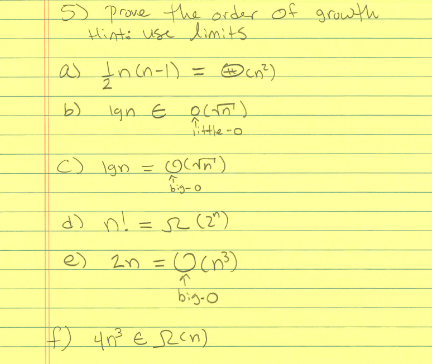 5) Prove the order of growth
Hint: use limits
a) 1/2 n(n-1) = Θ(n²)
b) lgn ∈ o(√n)
↑
little-o
c) lgn = O(√n)
↑
big-o
d) n! = Ω(2ⁿ)
e) 2n = O(n³)
↑
big-O
f) 4n³ ∈ Ω(n)